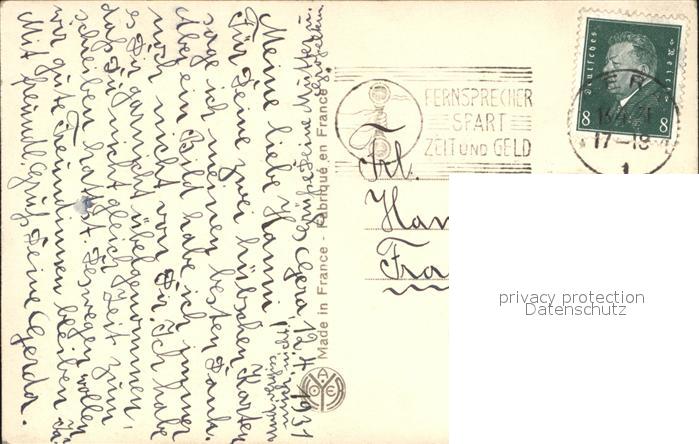 Gera, 12.4.1931
Meine liebe Hanni!
Für Deine zwei hübschen Karten
sage ich meinen besten Dank.
Aber ein Bild habe ich immer
noch nicht von Dir. Ich habe
es Dir garnicht übelgenommen,
daß Du nicht gleich Zeit zum
schreiben hattest. Deswegen wollen
wir gute Freundinnen bleiben. Ja.
Mit freundl. Gruß Deine Gerda.
Grüße Deine Mutter u.
Made in France - Fabriqué en France
Deutsches Reich
8 8
GERA
17-18
1
FERNSPRECHER
SPART
ZEIT UND GELD
Frl.
Han
Fra
privacy protection
Datenschutz